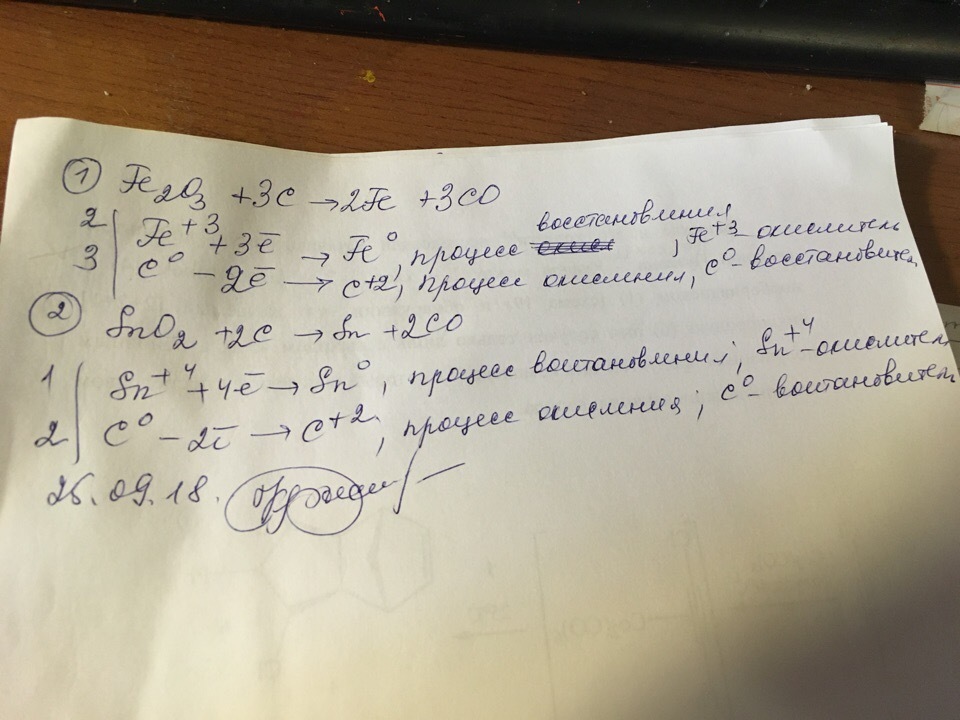 1 Fe2O3 + 3C → 2Fe + 3CO
2 | Fe+3 + 3ē → Fe0, процесс восстановления, Fe+3 - окислитель
3 | C0 - 2ē → C+2, процесс окисления, C0 - восстановител
2 SnO2 + 2C → Sn + 2CO
1 | Sn+4 + 4ē → Sn0, процесс востановления, Sn+4 - окислитель
2 | C0 - 2ē → C+2, процесс окисления; C0 - востановитель
25.09.18.